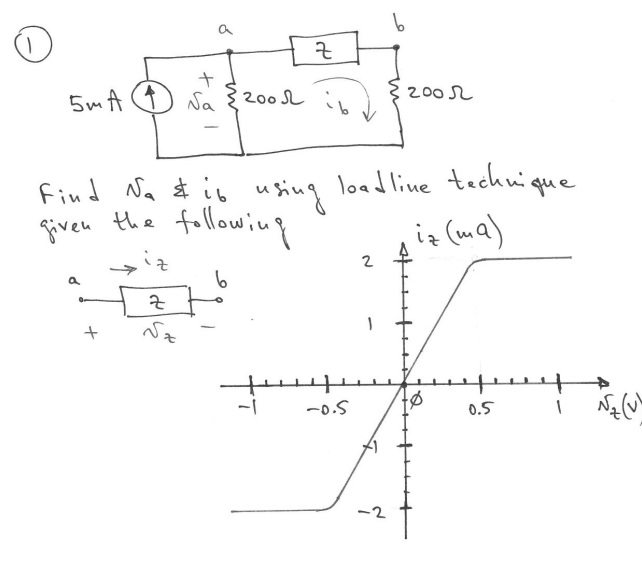 1
a
b
Z
5mA
+
Va
−
200Ω
ib
200Ω
Find Va & ib using loadline technique
given the following
iz (ma)
iz
a
b
Z
+
Vz
−
2
1
-1
-0.5
Ø
0.5
1
Vz(V)
-1
-2